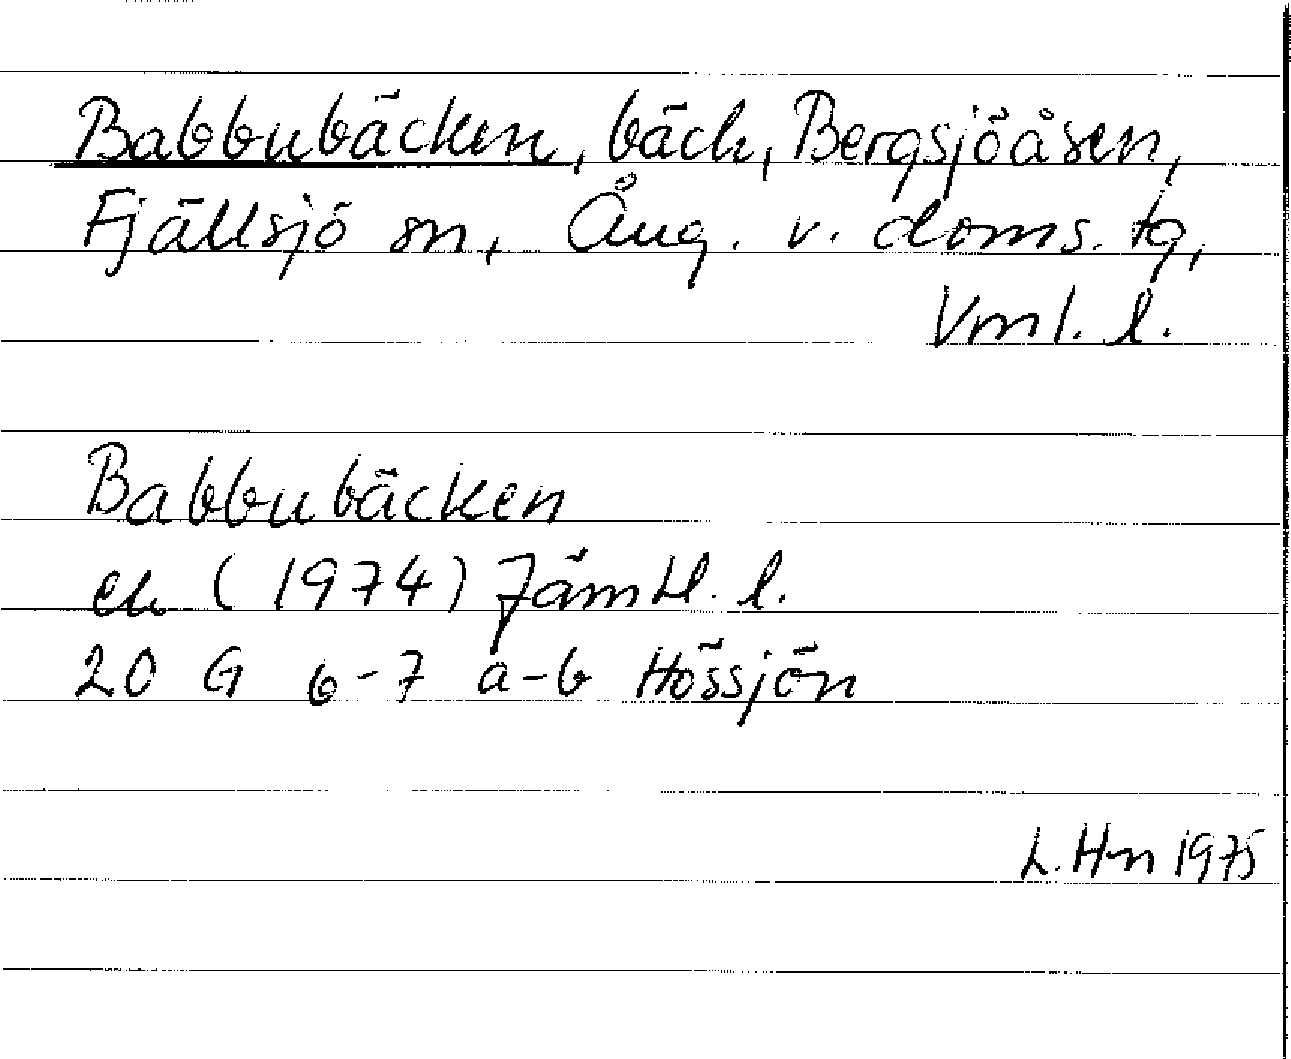 Babbubäcken, bäck, Bergsjöåsen,
Fjällsjö sn, Ång. v. doms. tg,
Vml. l.
Babbubäcken
ek (1974) Jämtl. l.
20 G 6-7 a-b Hössjön
L. Hn 1975